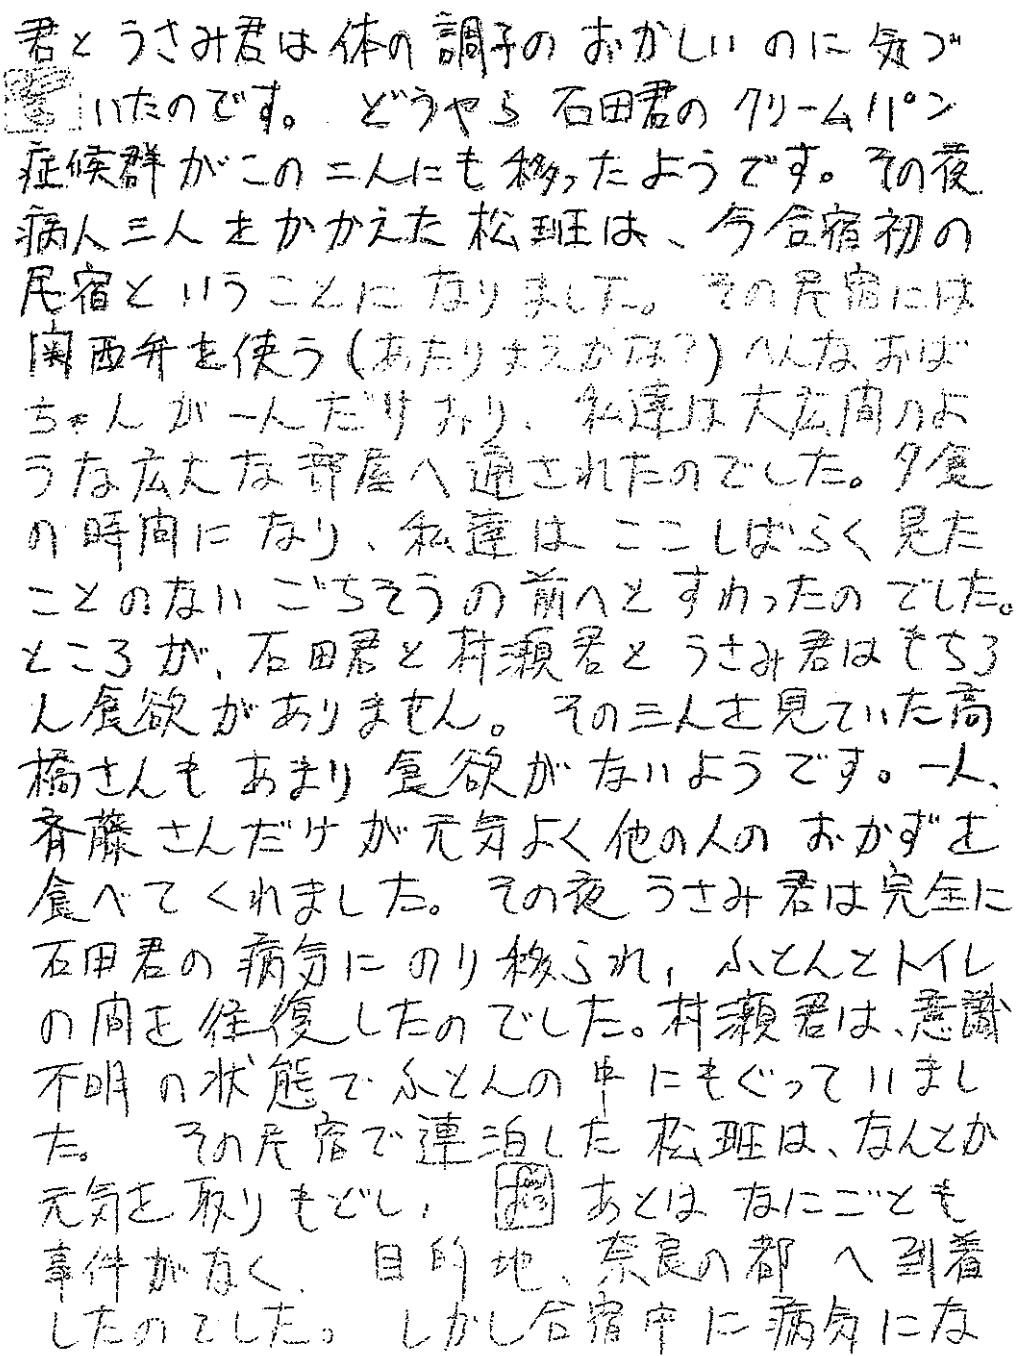 君とうさみ君は体の調子のおかしいのに気づ
いたのです。どうやら石田君のクリームパン
症候群がこの二人にも移ったようです。その夜
病人三人をかかえた松班は、今合宿初の
民宿ということになりました。その民宿には
関西弁を使う(あたりまえかな?)へんなおば
ちゃんが一人だけおり、私達は大広間のよ
うな広大な部屋へ通されたのでした。夕食
の時間になり、私達はここしばらく見た
ことのないごちそうの前へとすわったのでした。
ところが、石田君と村瀬君とうさみ君はもちろ
ん食欲がありません。その三人を見ていた高
橋さんもあまり食欲がないようです。一人、
斉藤さんだけが元気よく他の人のおかずを
食べてくれました。その夜うさみ君は完全に
石田君の病気にのり移られ,ふとんとトイレ
の間を往復したのでした。村瀬君は、意識
不明の状態でふとんの中にもぐっていまし
た。その民宿で連泊した松班は、なんとか
元気を取りもどし,あとはなにごとも
事件がなく、目的地、奈良の都へ到着
したのでした。しかし合宿中に病気にな